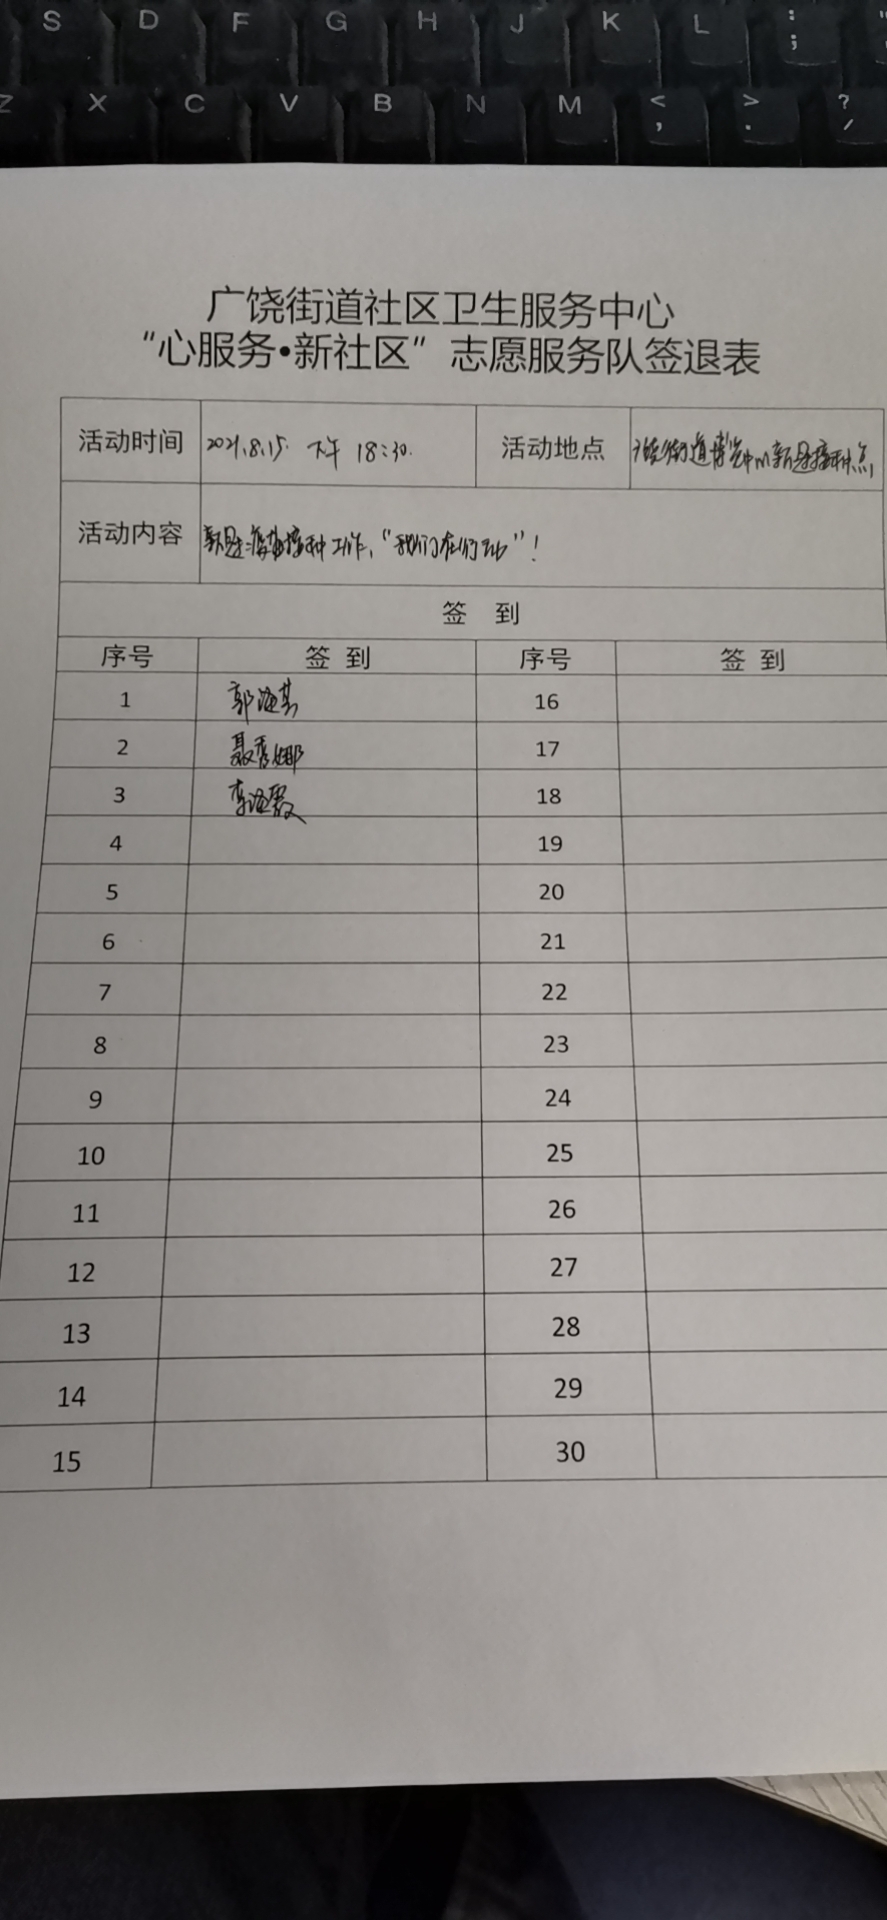 S D F G H J K L : ;
Z X C V B N M < , > . ? /
广饶街道社区卫生服务中心
“心服务•新社区”志愿服务队签退表
活动时间 2021.8.15. 下午 18:30. 活动地点 广饶街道博览中心新冠接种点
活动内容 新冠疫苗接种工作,“我们在行动”!
签 到
序号 签到 序号 签到
1 郭海英 16
2 聂秀娜 17
3 李海霞 18
4 19
5 20
6 21
7 22
8 23
9 24
10 25
11 26
12 27
13 28
14 29
15 30